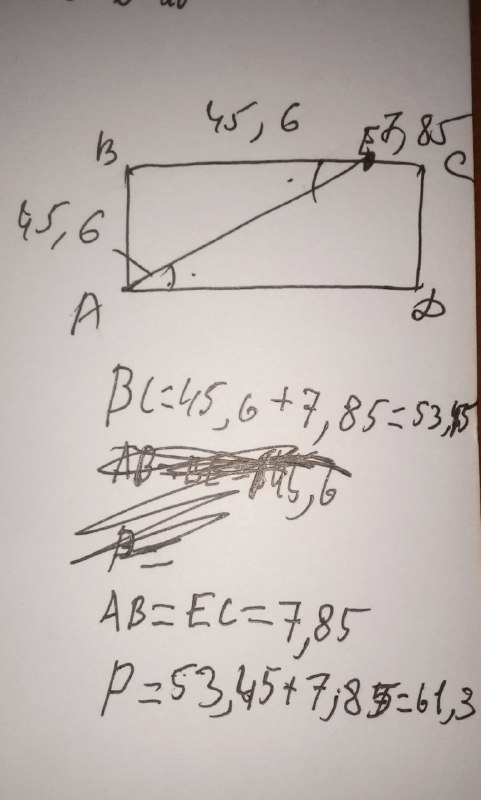 45,6
E 7,85
B
C
45,6
A
D
BC=45,6+7,85=53,45
45,6
P=
AB=EC=7,85
P=53,45+7,85=61,3